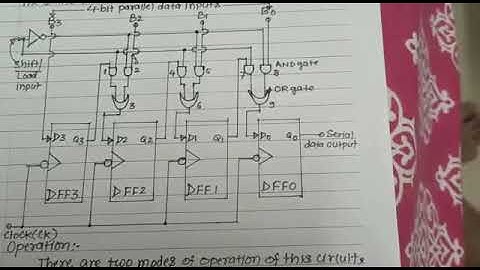 4-bit parallel data inputs
B3 B2 B1 B0
Shift/
Load
input
1 2 4 5 7 8
AND gate
OR gate
3 6 9
D3 Q3 D2 Q2 D1 Q1 D0 Q0
Serial
data output
DFF3 DFF2 DFF1 DFF0
Clock(CK)
Operation:-
There are two modes of operation of this circuit